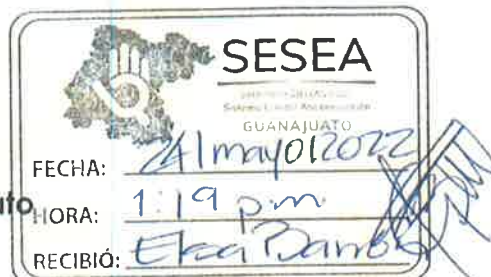 SESEA
GUANAJUATO
FECHA: 24/mayo/2022
uto
HORA: 1:19 p.m
RECIBIÓ: Elsa